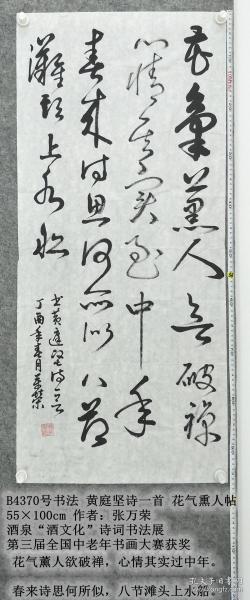 花气薰人欲破禅
心情其实过中年
春来诗思何所似八节
滩头上水船
书黄庭坚诗一首
丁酉年春月万荣
B4370号书法 黄庭坚诗一首 花气熏人帖
55×100cm 作者：张万荣
酒泉“酒文化”诗词书法展
第三届全国中老年书画大赛获奖
花气薰人欲破禅，心情其实过中年。
春来诗思何所似，八节滩头上水船。